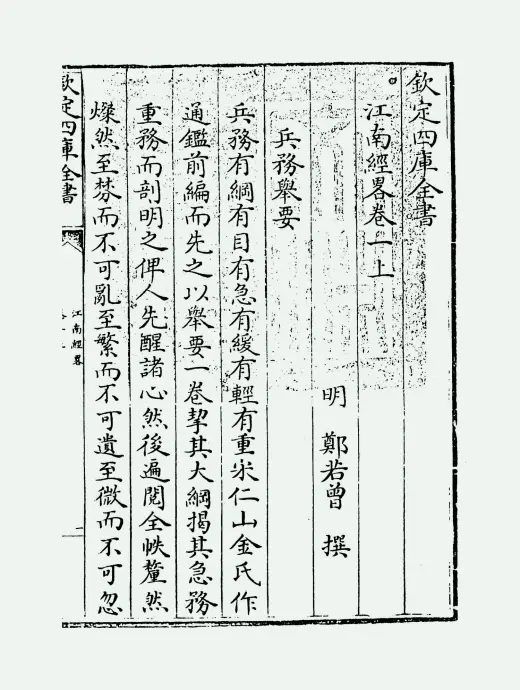 欽定四庫全書
江南經畧卷一上
明 鄭若曾 撰
兵務舉要
兵務有綱有目有急有緩有輕有重宋仁山金氏作
通鑑前編而先之以舉要一卷挈其大綱揭其急務
重務而剖明之俾人先醒諸心然後遍閱全帙釐然
燦然至棼而不可亂至繁而不可遺至微而不可忽
欽定四庫全書
江南經畧